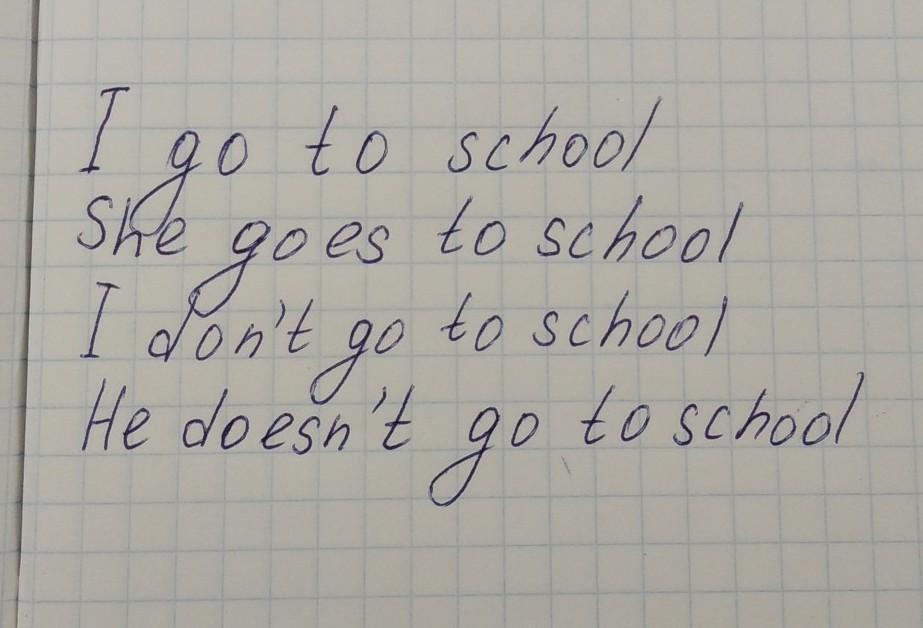 I go to school
She goes to school
I don't go to school
He doesn't go to school